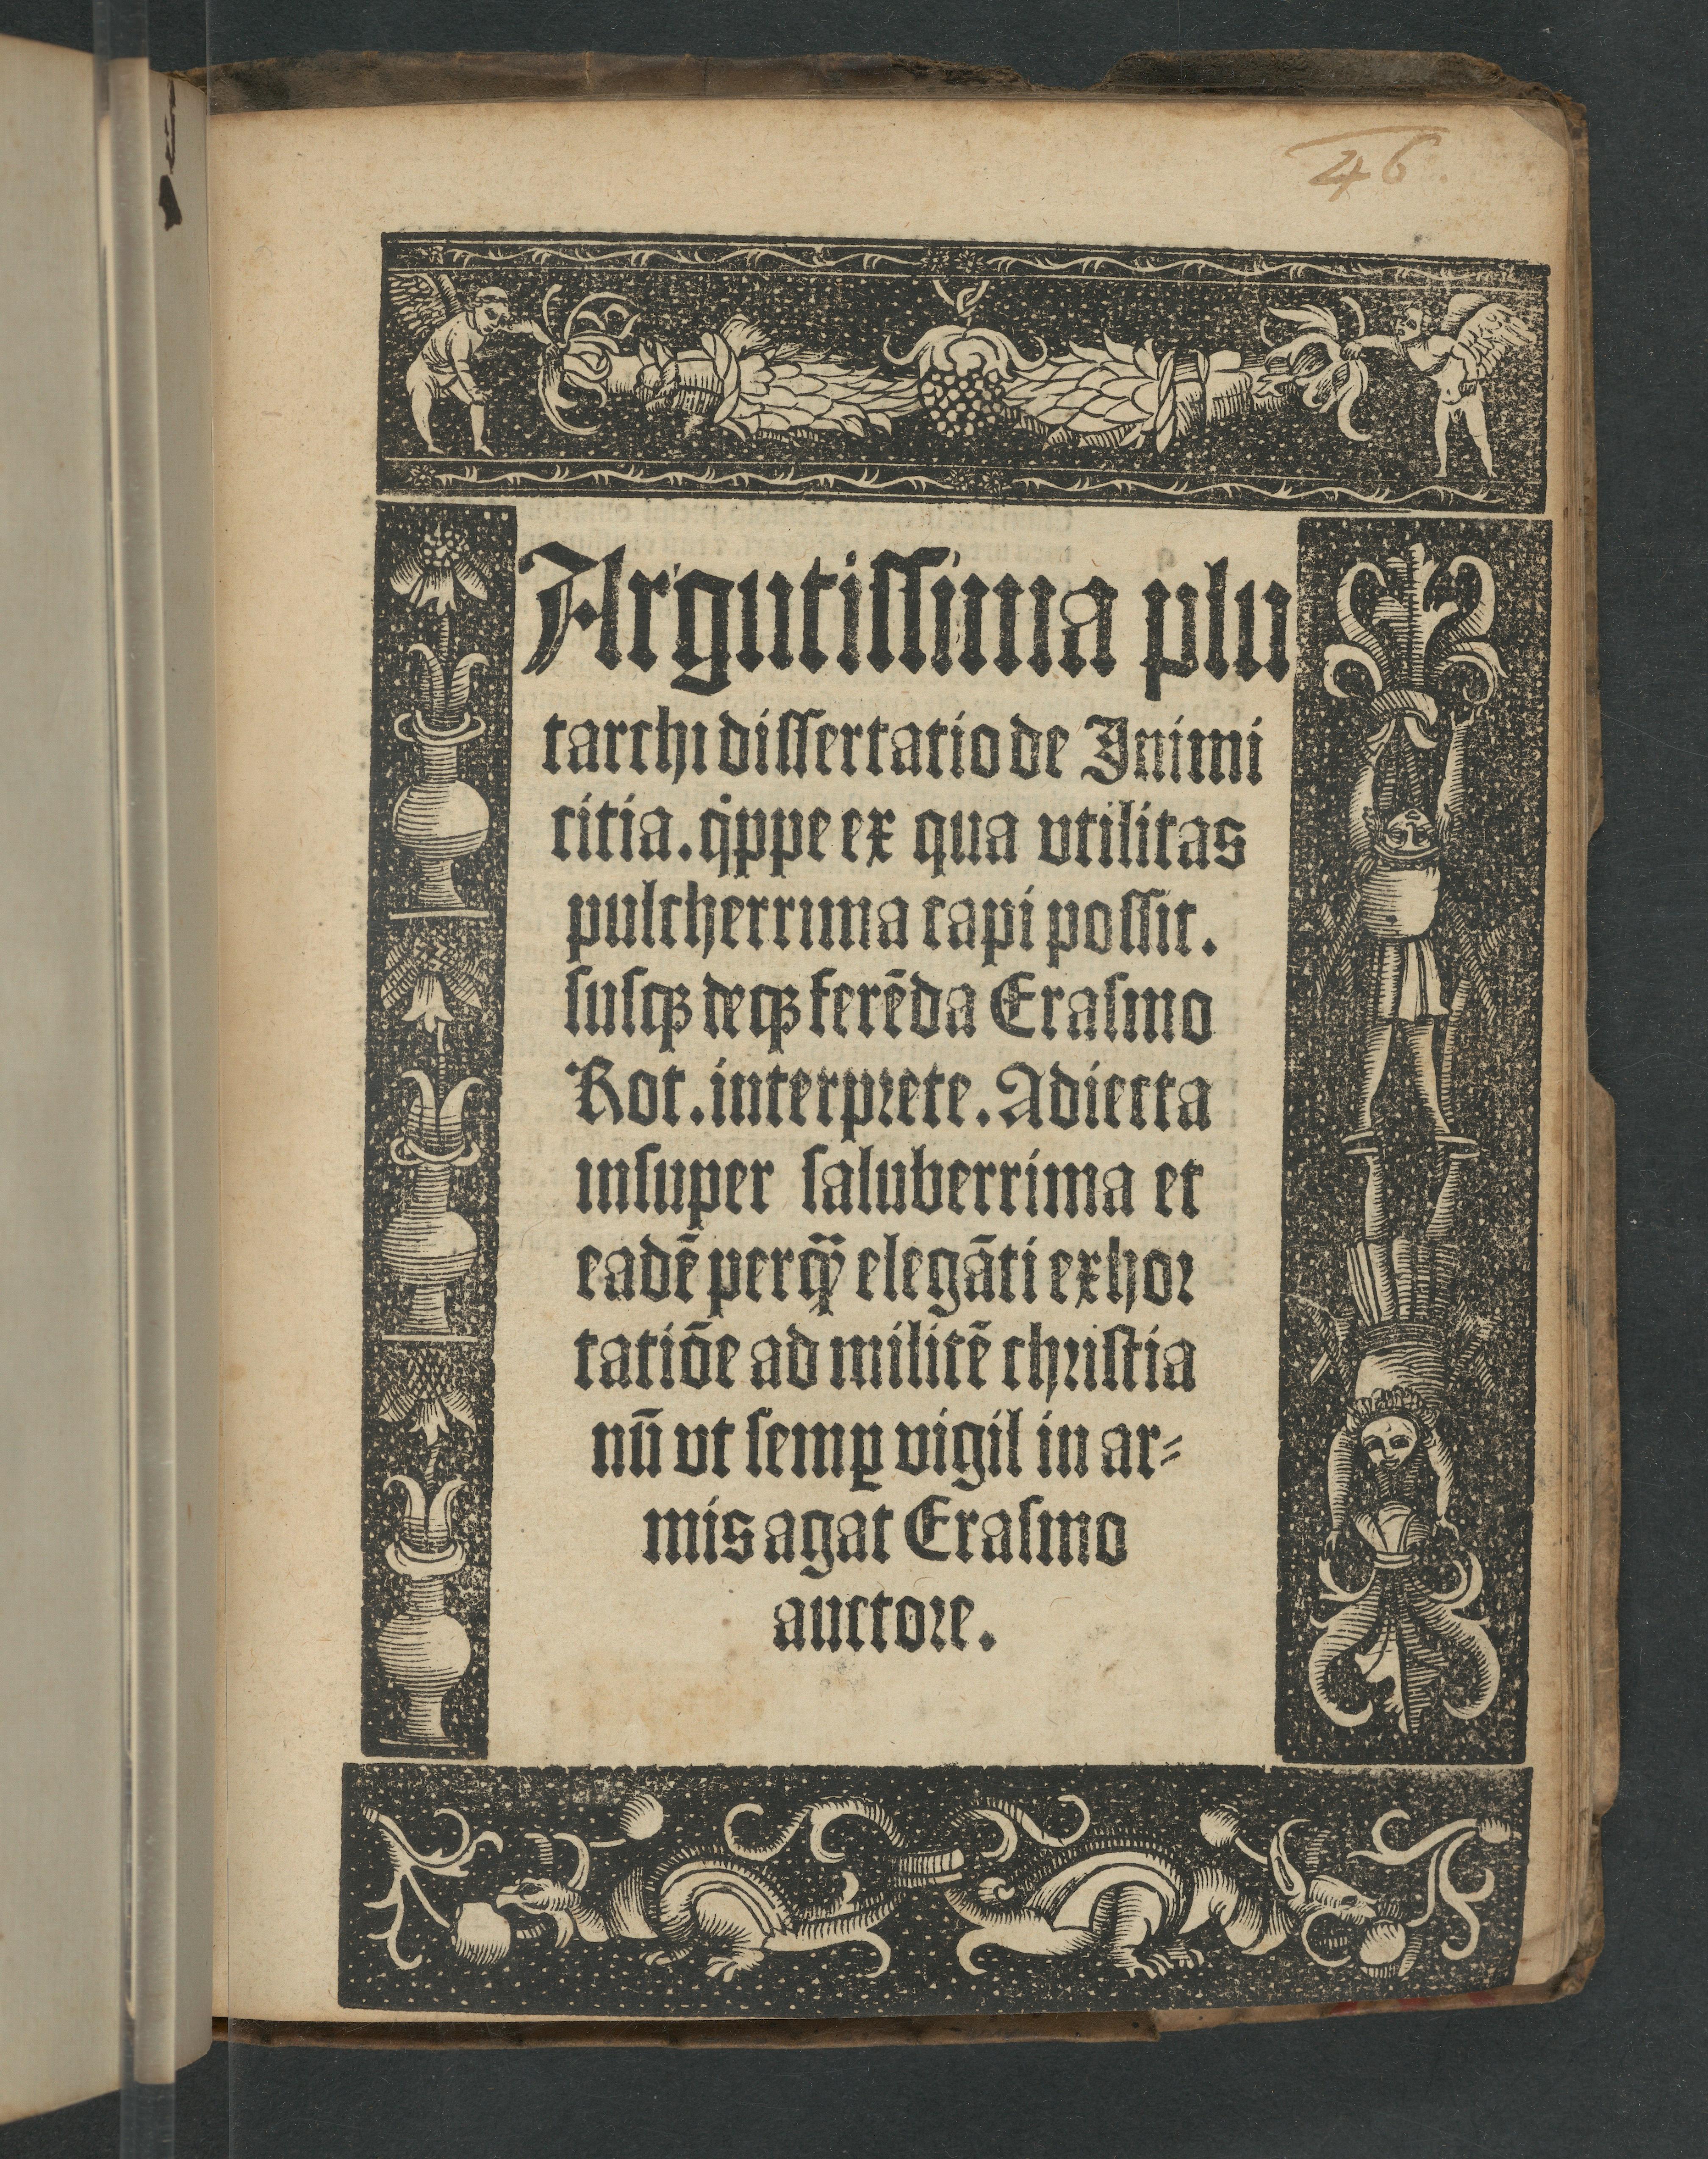 46.
Argutissima plu
tarchi dissertatio de Inimi
citia. qͥppe ex qua vtilitas
pulcherrima capi possit.
susqꝫ deqꝫ ferēda Erasmo
Rot. interprete. Adiecta
insuper saluberrima et
eadē perqȝ̄ elegāti exhor
tatiōe ad militē christia
nū vt semꝑ vigil in ar⸗
mis agat Erasmo
auctore.